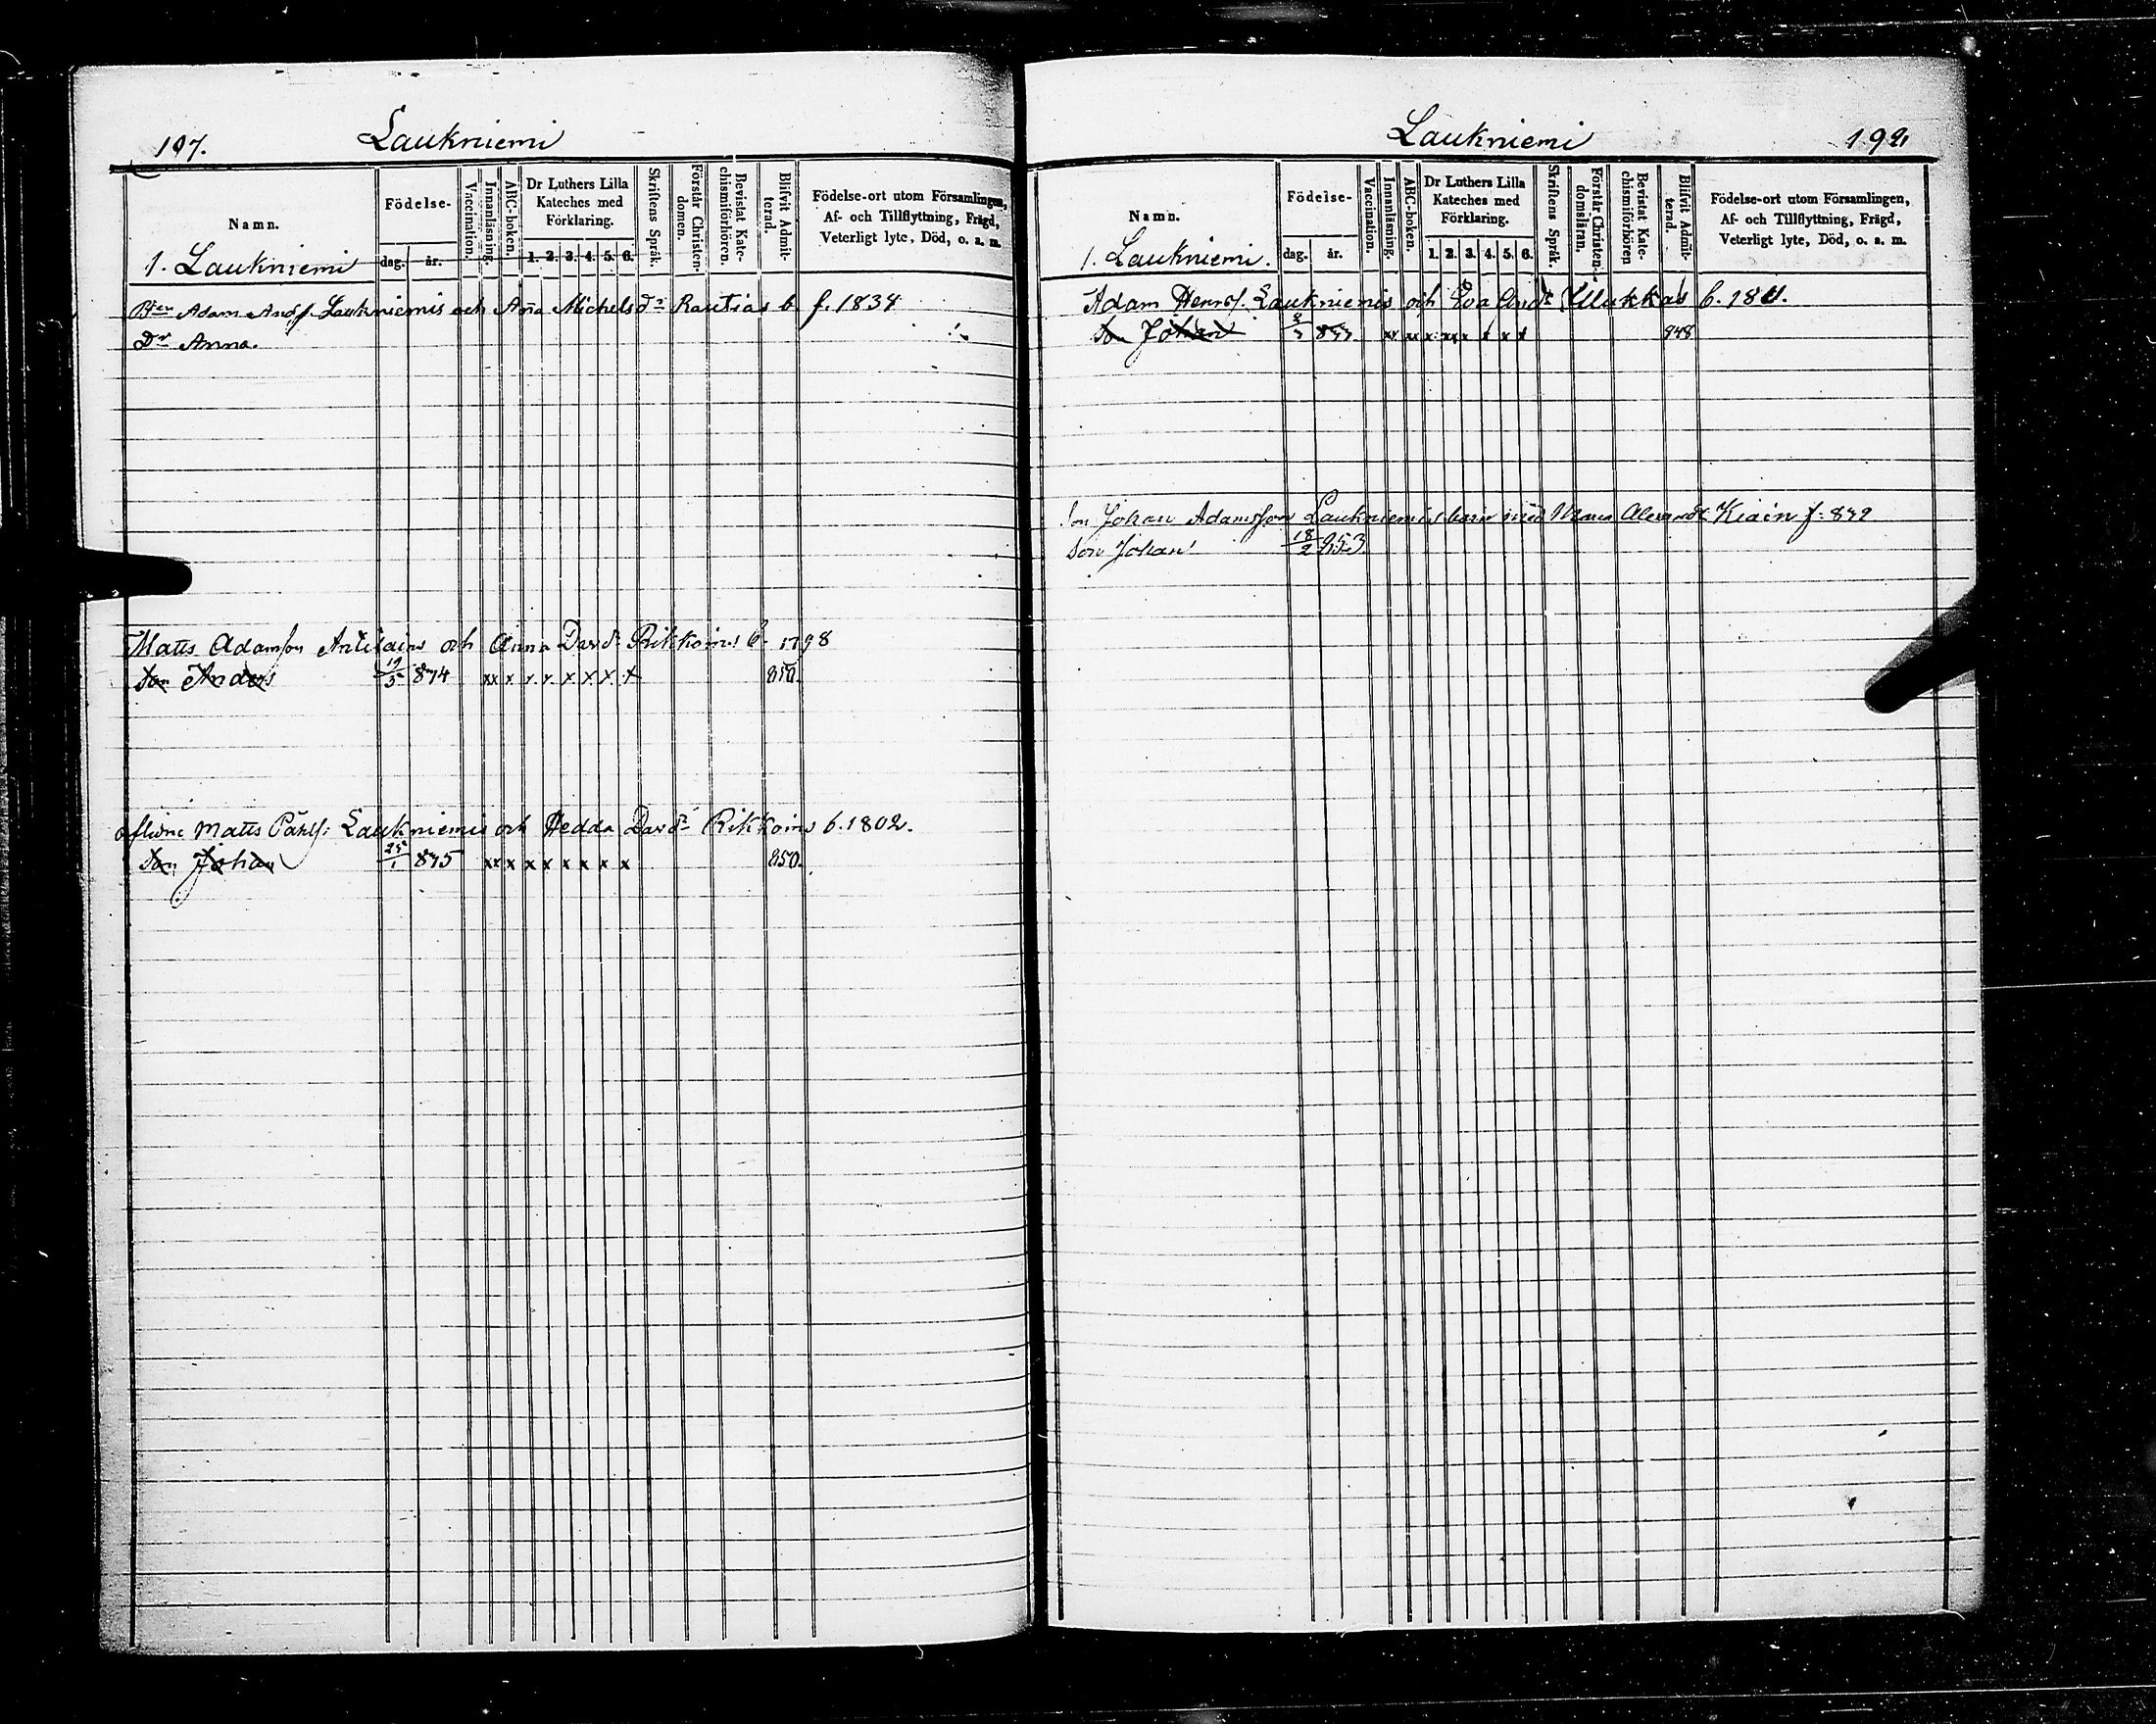 197. Laukniemi
Namn.
Födelse-
dag. år.
Vaccination.
Innanläsning.
ABC-boken.
Dr Luthers Lilla
Kateches med
Förklaring.
1. 2. 3. 4. 5. 6.
Skriftens Språk.
Förstår Christen-
domen.
Bevistat Kate-
chismiförhören.
Blifvit Admit-
terad.
Födelse-ort utom Församlingen,
Af- och Tillflyttning, Frägd,
Veterligt lyte, Död, o. a. m.
1. Laukniemi
Adam Andf. Laukniemis och Aña Michelsdr Rautias b f. 1834
Dr Anna.
Matts Adamson och Anna Davdr Rikkoins b. 1798
Son Anders 19/5 834 xx x x x x x x x 850.
aflidne Matts Påhlf: Laukniemis och Hedda Davdr Rikkoins b. 1802.
Son Johan 25/1 835 xx x x x x x x x 850.
Laukniemi
Namn.
Födelse-
dag. år.
Vaccination.
Innanläsning.
ABC-boken.
Dr Luthers Lilla
Kateches med
Förklaring.
1. 2. 3. 4. 5. 6.
Skriftens Språk.
Förstår Christen-
domsläran.
Bevistat Kate-
chismiförhören
Blifvit Admit-
terad.
Födelse-ort utom Församlingen,
Af- och Tillflyttning, Frägd,
Veterligt lyte, Död, o. a. m.
1. Laukniemi.
Adam Henrs. Laukniemis och Eva Andr b.
Son Johan xx xx x xx x x x x 848
Son Johan Adamsson Laukniemis barn med Maria Kiain f.
Son Johan 18/2 853